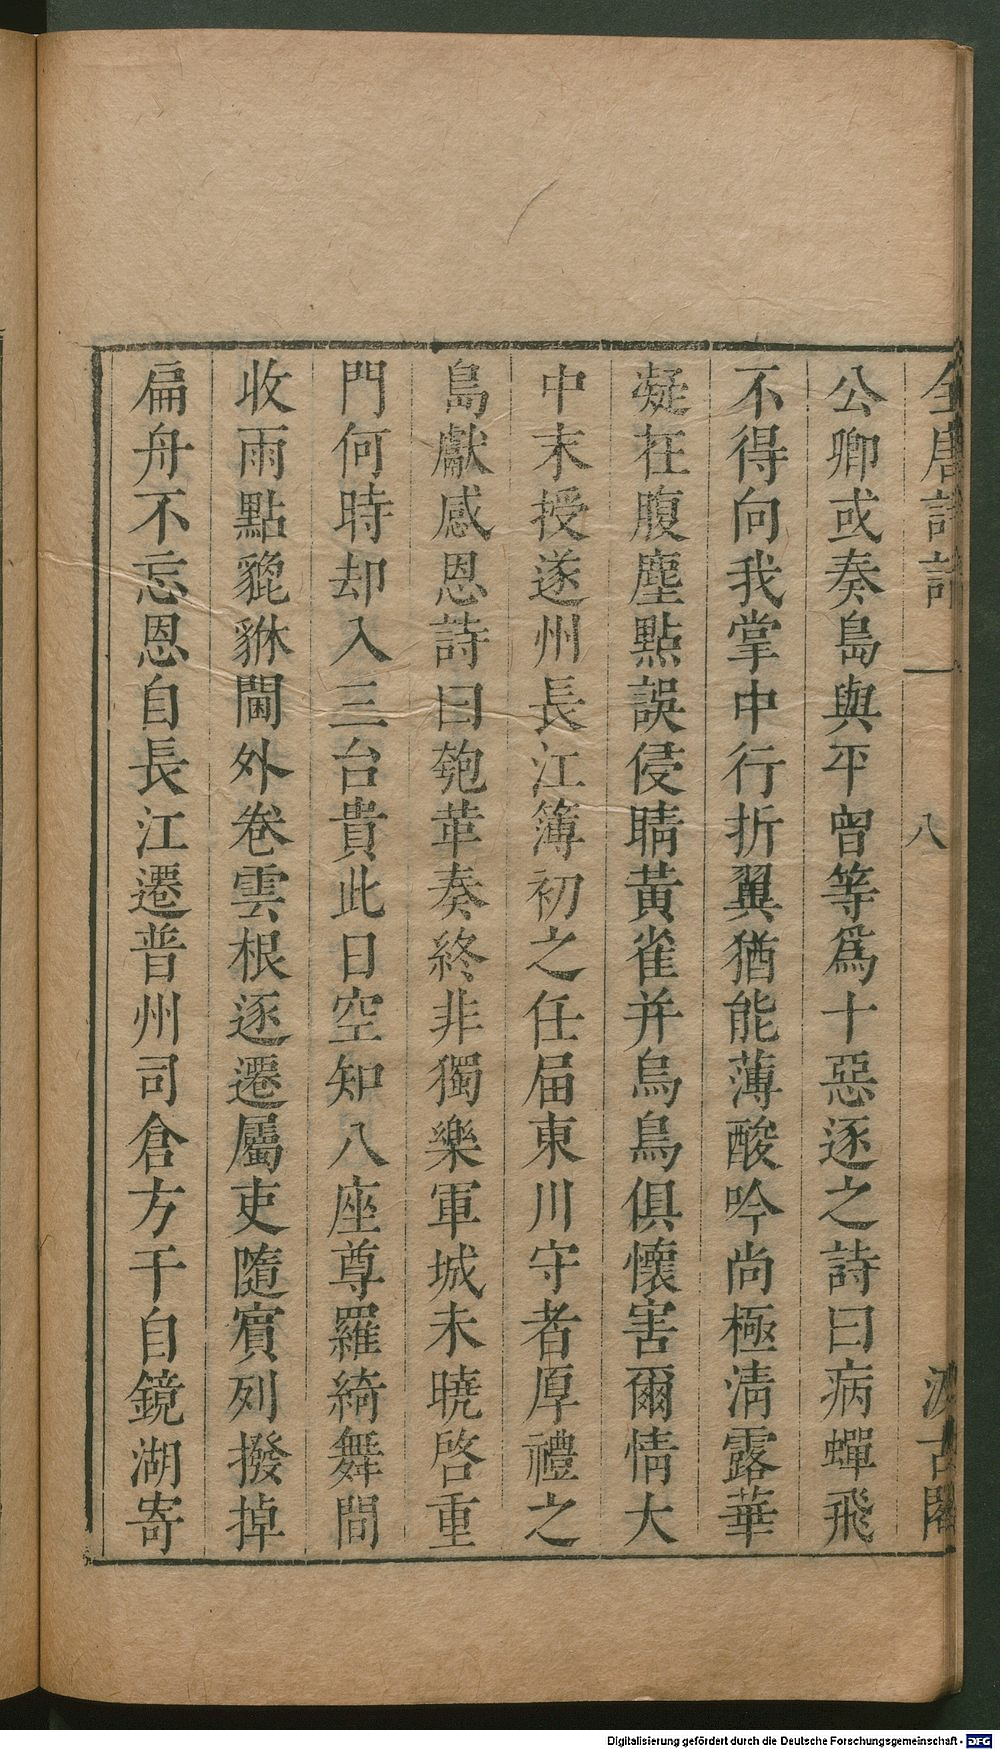 全唐詩話 一 八 汲古閣
公卿或奏島與平曾等爲十惡逐之詩曰病蟬飛
不得向我掌中行折翼猶能薄酸吟尚極淸露華
凝在腹塵點誤侵睛黃雀并烏鳥俱懷害爾情大
中末授遂州長江簿初之任届東川守者厚禮之
島獻感恩詩曰匏革奏終非獨樂軍城未曉啓重
門何時却入三台貴此日空知八座尊羅綺舞間
收雨點貔貅閫外卷雲根逐遷屬吏隨賓列撥掉
扁舟不忘恩自長江遷普州司倉方干自鏡湖寄
Digitalisierung gefördert durch die Deutsche Forschungsgemeinschaft - DFG